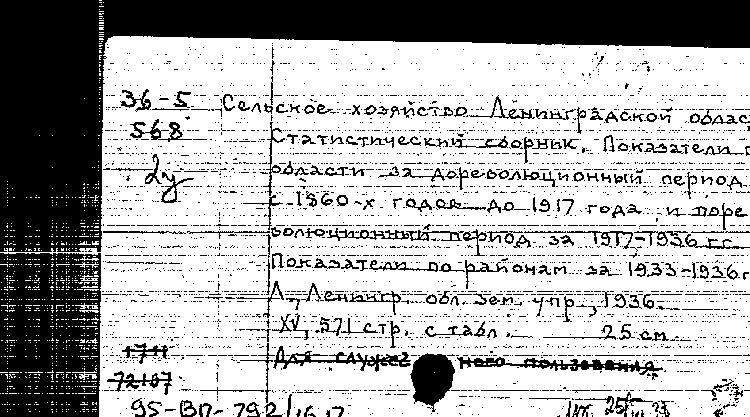 36-5 Сельское хозяйство Ленинградской облас
568 Статистический сборник. Показатели п
2у области за дореволюционный период
с 1860-х годов до 1917 года и поре
волюционный период за 1917-1936 г.г.
Показатели по районам за 1933-1936 г
Л., Ленингр. обл. зем. упр., 1936.
XV, 571 стр. с табл. 25 см
1711 Для служеб ного пользования
72107
95-ВП-792/1617